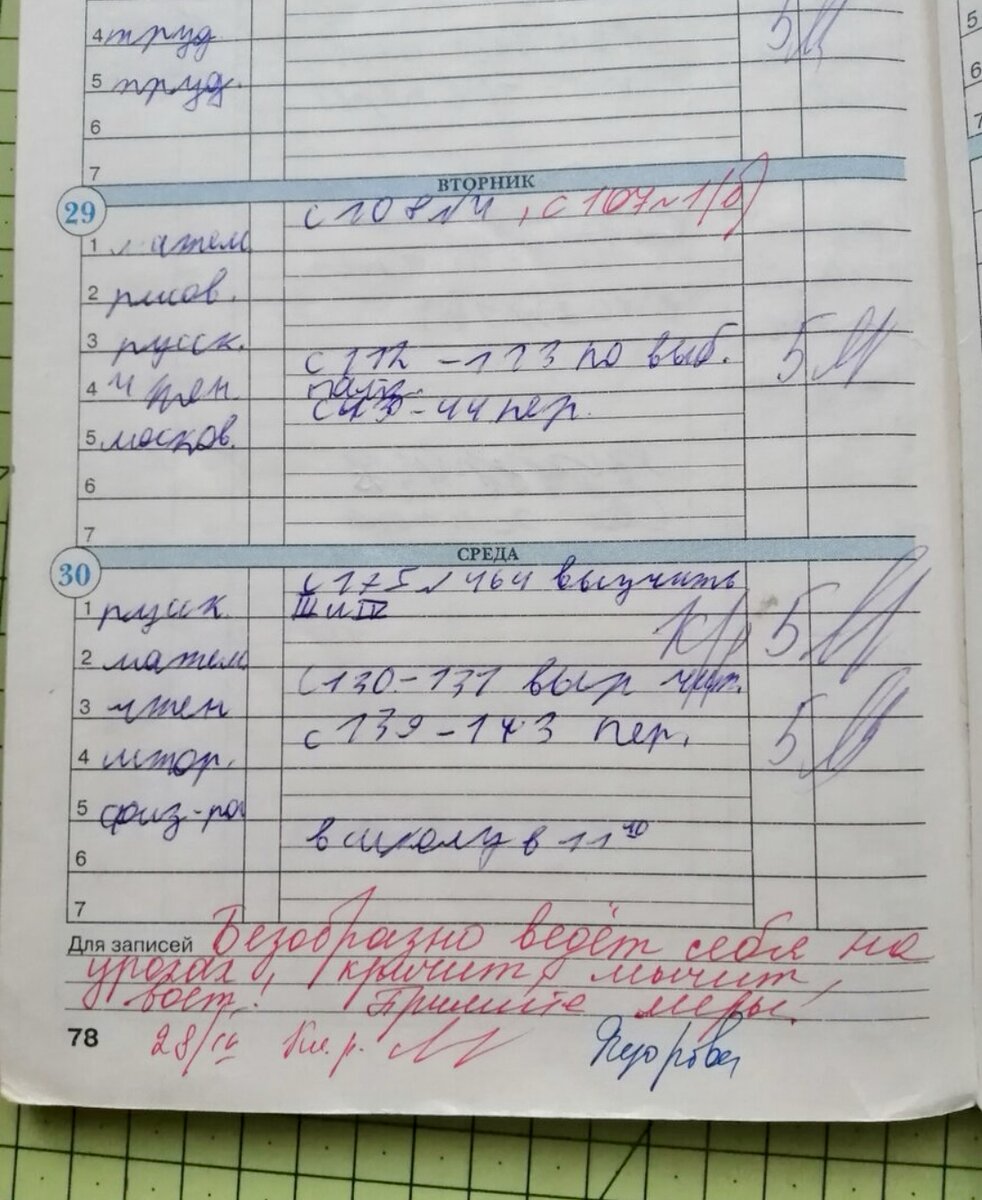 4 труд
5 М
5 труд.
6
7
ВТОРНИК
29
с 108 №4, с 107 №1(б)
1 матем
2 рисов.
3 русск.
с 112 - 113 по выб. 5
4 чтен.
с 43 - 44 пер.
5 москов.
6
7
СРЕДА
30
с 175 № 464 выучить
1 русск.
III и IV
к/р 5
2 матем
с 130-131 выр чит.
3 чтен
с 139 - 143 пер. 5
4 истор.
5 физ-ра
в школу в 11 40
6
7
Для записей Безобразно ведёт себя на
уроках, кричит, мычит,
воет! Примите меры!
78 28/IV Кл. р.